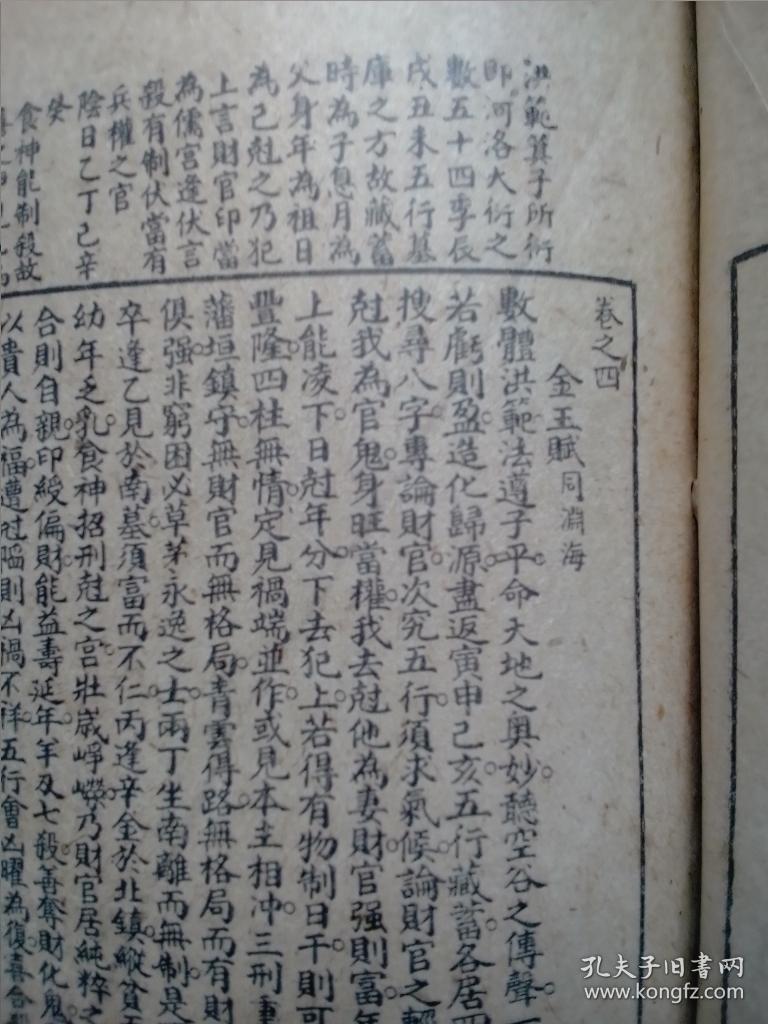 洪範箕子所衍
即河洛大衍之
數五十四季辰
戌丑未五行墓
庫之方故藏蓄
時為子息月為
父身年為祖日
為己尅之乃犯
上言財官印當
為儒宫逢伏言
殺有制伏當有
兵權之官
陰日乙丁己辛
癸
食神能制殺故
卷之四
金玉賦同淵海
數體洪範法遵子平命天地之奧妙聽空谷之傳聲
若虧則盈造化歸源盡返寅申己亥五行藏蓄各居四
搜尋八字專論財官次究五行須求氣候論財官之輕
尅我為官鬼身旺當權我去尅他為妻財官强則富年
上能凌下日尅年分下去犯上若得有物制日干則可
豐隆四柱無情定見禍端並作或見本主相冲三刑重
藩垣鎮守無財官而無格局青雲得路無格局而有財
俱强非窮困必草茅永逸之士兩丁生南離而無制是
卒逢乙見於南墓須富而不仁丙逢辛金於北鎮縱貧
幼年乏乳食神招刑尅之宫壯歲崢嶸乃財官居純粹之
合則自親印綬偏財能益壽延年羊及七殺善奪財化鬼
以貴人為福遭尅陷則凶禍不祥五行會凶曜為復喜合
孔夫子旧書网
www.kongfz.com